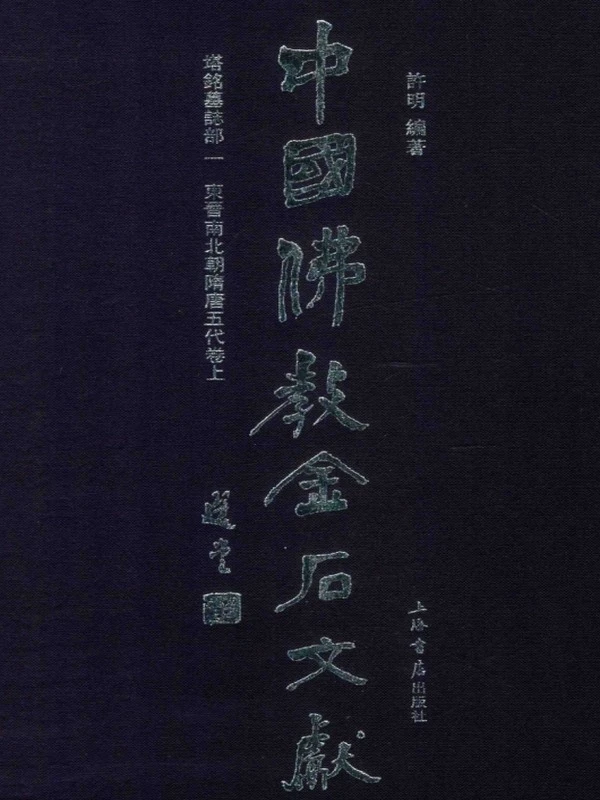 許明 編著
中國佛教金石文獻
塔銘墓誌部一 東晉南北朝隋唐五代卷上
選堂
上海書店出版社